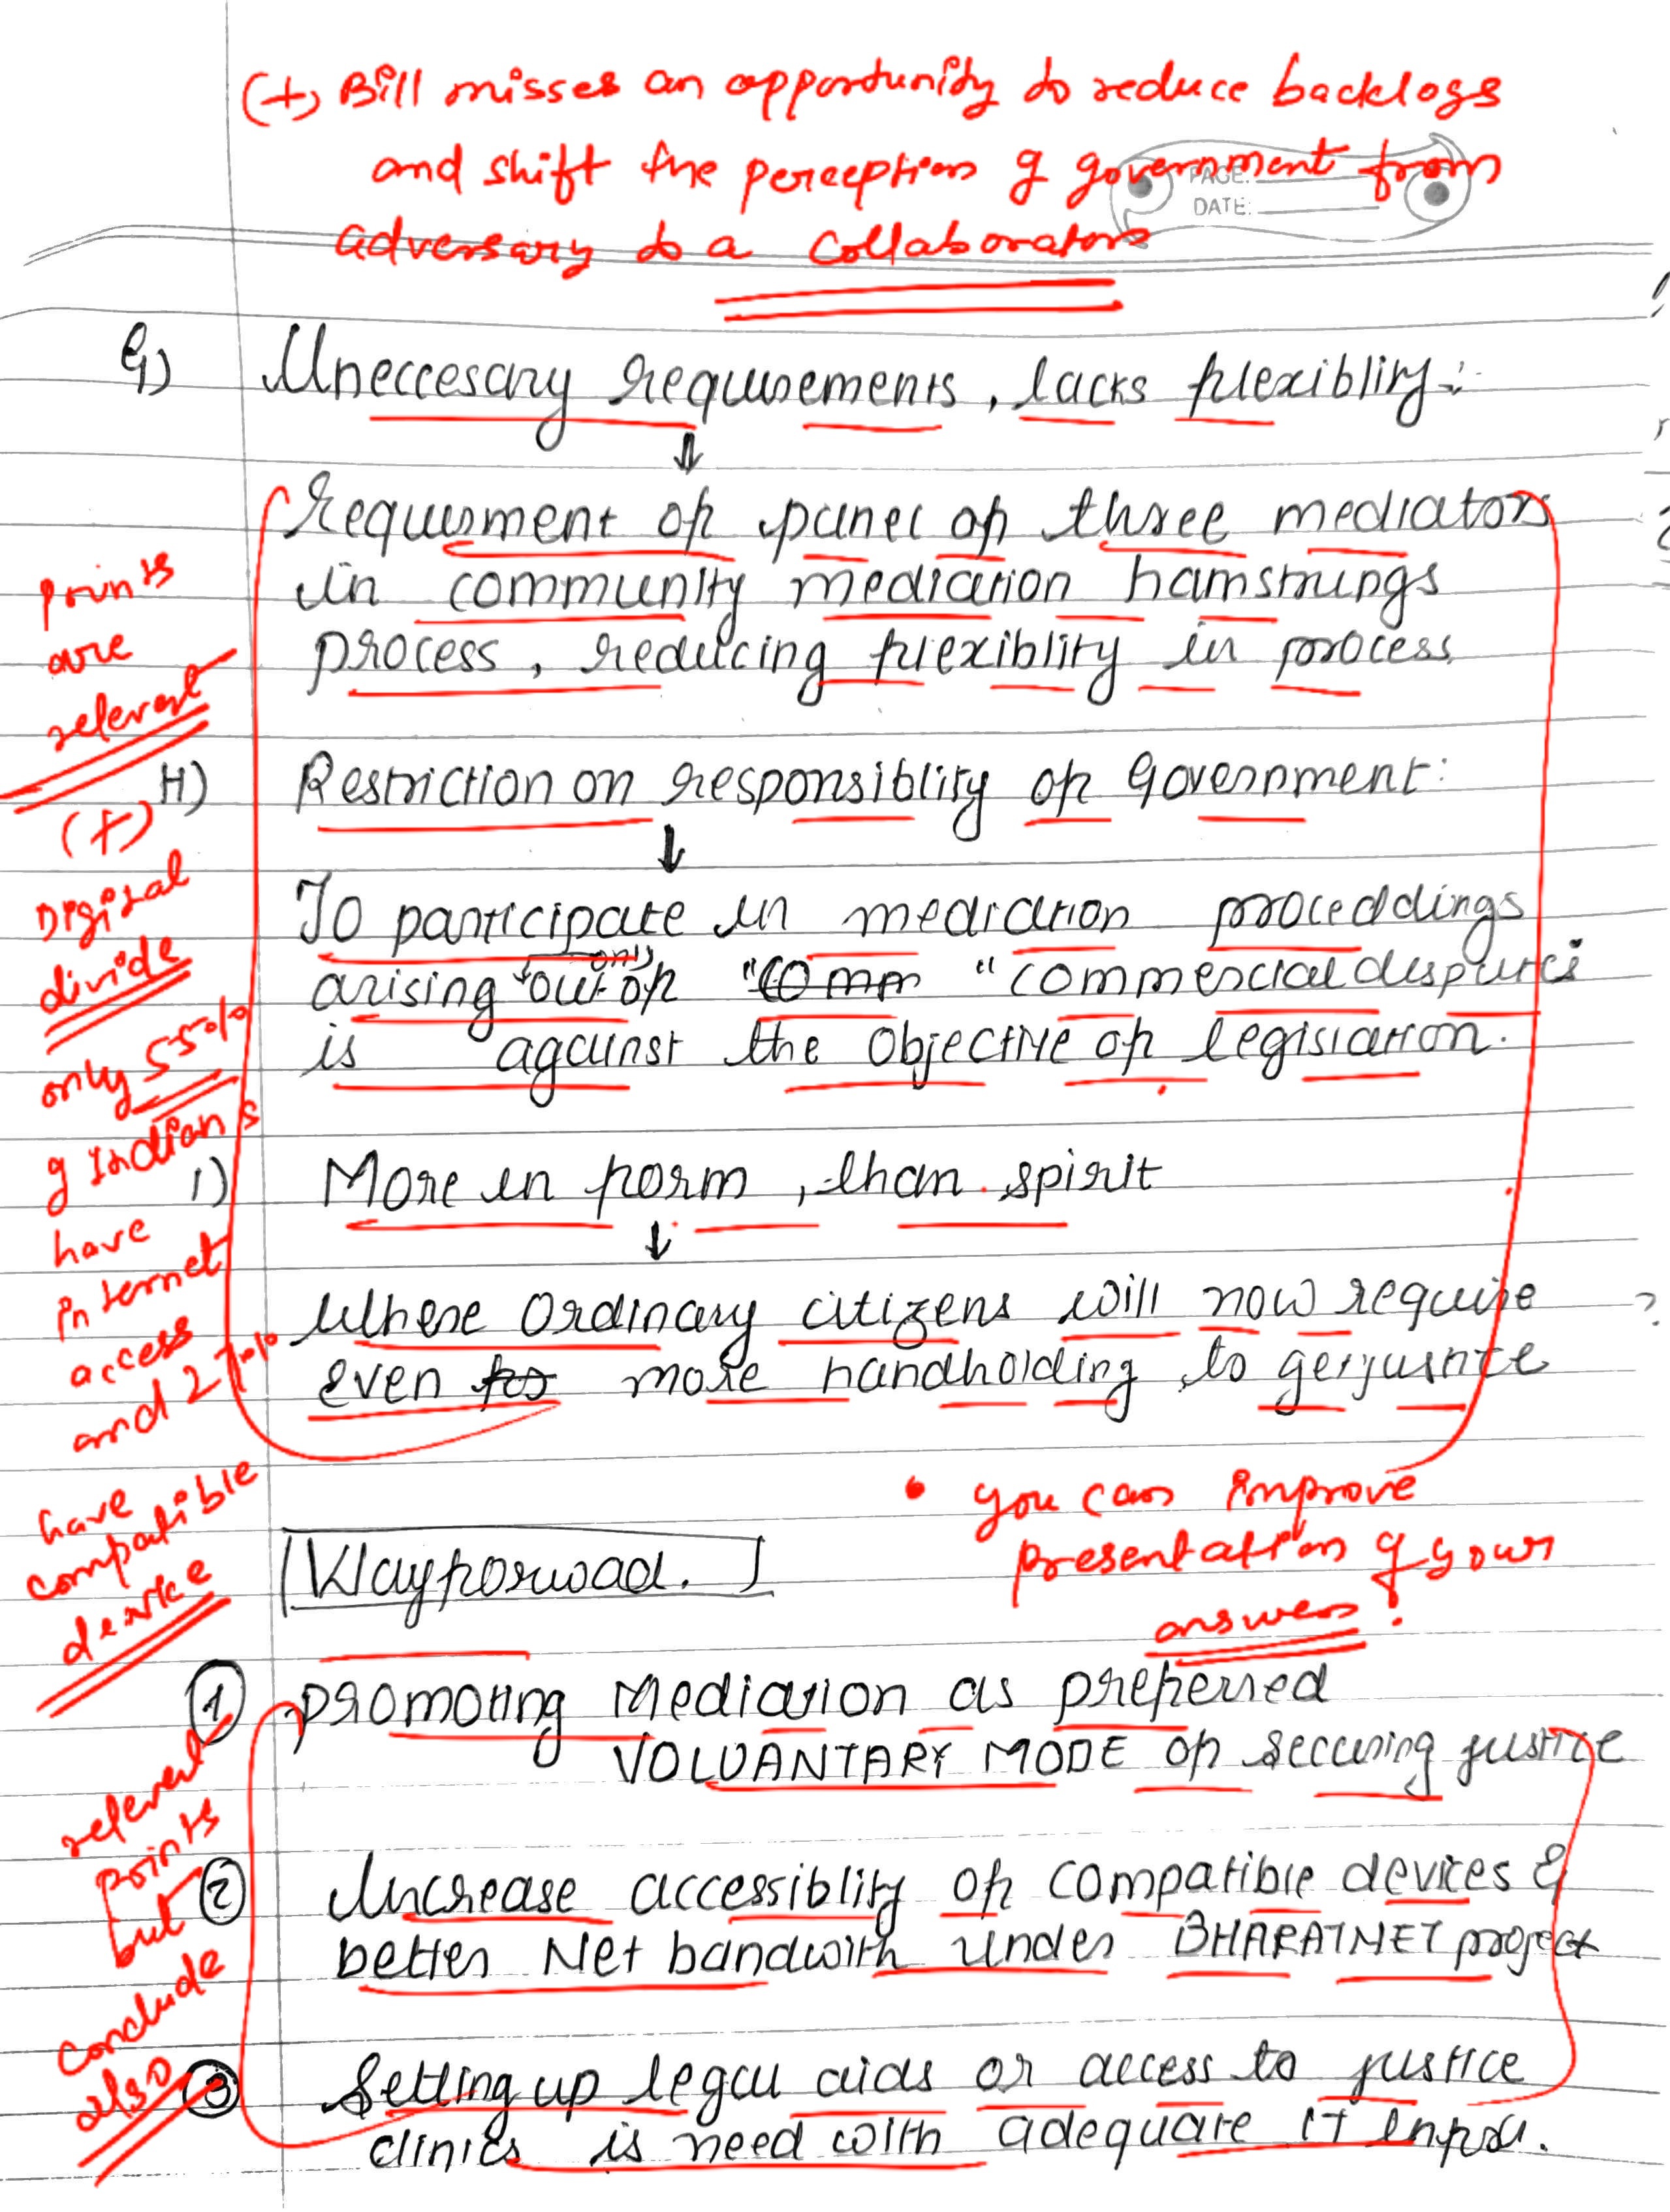 (+) Bill misses an opportunity to reduce backlogs
and shift the perception of government from
PAGE:
DATE:
adversary to a collaborators
G) Uneccesary requirements, lacks flexiblity:
Requirment of panel of three mediators
in community mediation hamstrungs
process, reducing flexiblity in process
points
are
relevant
H) Restriction on responsiblity of Government:
(+)
Digital
divide
only 55%
of Indians
have
internet
access
and 27%
have
compatible
device
To participate in mediation proceddings
arising only out of "comm "commercial disputes
is against the objective of legislation.
I) More in form, than spirit
Where ordinary citizens will now require
even for more handholding to get justice
• you can improve
presentation of your
answers!
Wayforwoad.
① promoting Mediation as preferred
VOLUANTARY MODE of securing justice
relevant
points
but
conclude
also
② Increase accessiblity of compatible devices &
better Net bandwith under BHARATNET project
③ Setting up legal aids or access to justice
clinics is need with adequate IT infra.